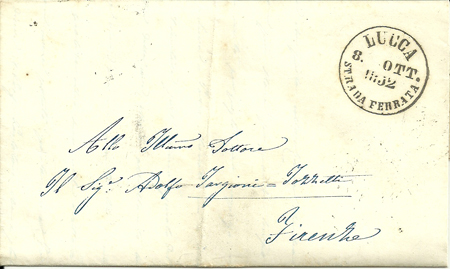 LUCCA
8. OTT.
1852
STRADA FERRATA.
Allo Illmo Dottore
Il Sigr. Adolfo Targioni=Tozzetti
Firenze